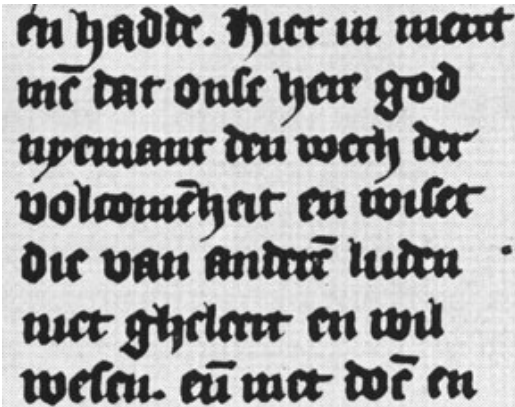 en hadde. Hier in merct
mē dat onse heer god
nyemant den wech der
volcomēheit en wiset
die van anderē luden
niet gheleert en wil
wesen. eñ niet doē en